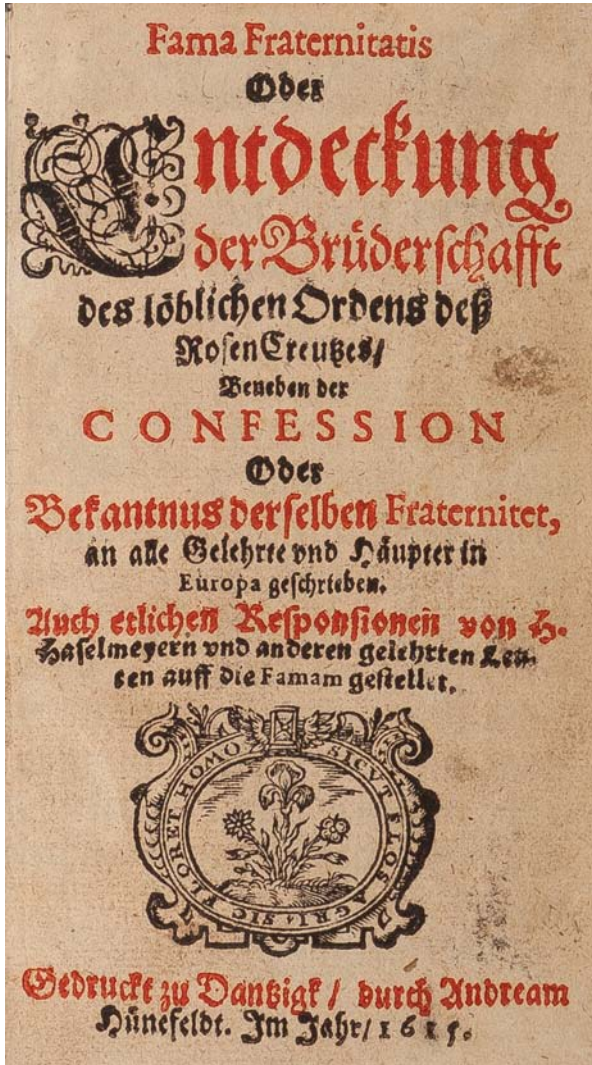 Fama Fraternitatis
Oder
Entdeckung
der Brüderschafft
des löblichen Ordens deß
RosenCreutzes/
Beneben der
CONFESSION
Oder
Bekantnus derselben Fraternitet,
an alle Gelehrte vnd Häupter in
Europa geschrieben.
Auch etlichen Responsionen von H.
Haselmeyern vnd anderen gelehrten Leu-
ten auff die Famam gestellet.
SICVT FLOS AGRI, SIC FLORET HOMO
Gedruckt zu Dantzigk / durch Andream
Hünefeldt. Im Jahr/ 1615.